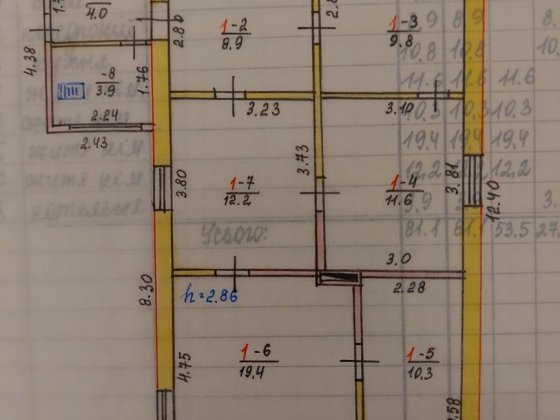 4.0
2.80
1-2
8.9
1-3
9.8
4.38
-8
3.9
1.76
2.24
2.43
3.23
3.10
3.73
3.80
1-7
12.2
1-4
11.6
3.81
12.40
Усього:
81.1 81.1 53.5 27
3.0
2.28
8.30
h=2.86
4.75
1-6
19.4
1-5
10.3
.58
8.9
10.8 10.8
11.6 11.6 11.6
10.3 10.3 10.3
19.4 19.4 19.4
12.2 12.2 12.2
3.9